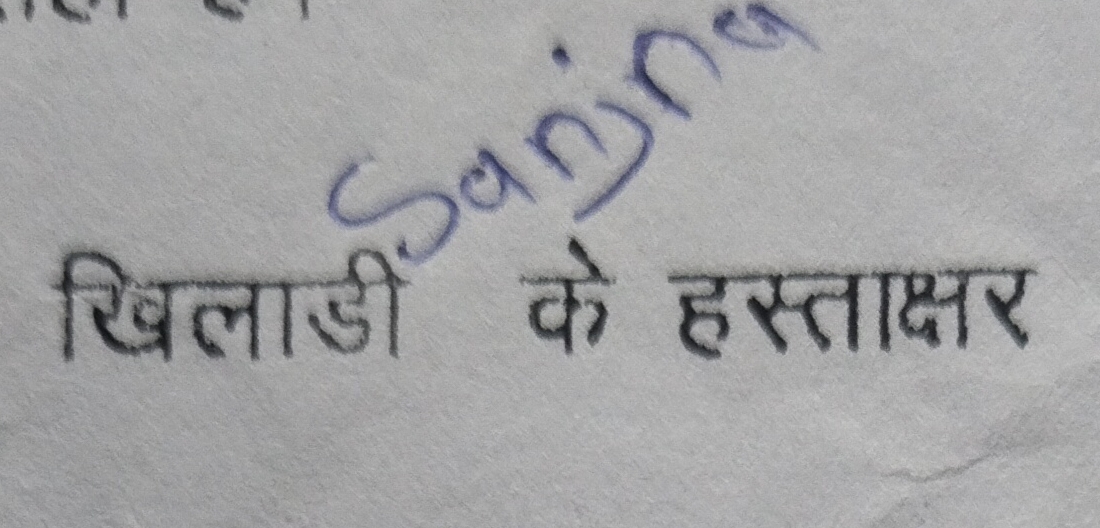 Sanjna
खिलाडी के हस्ताक्षर